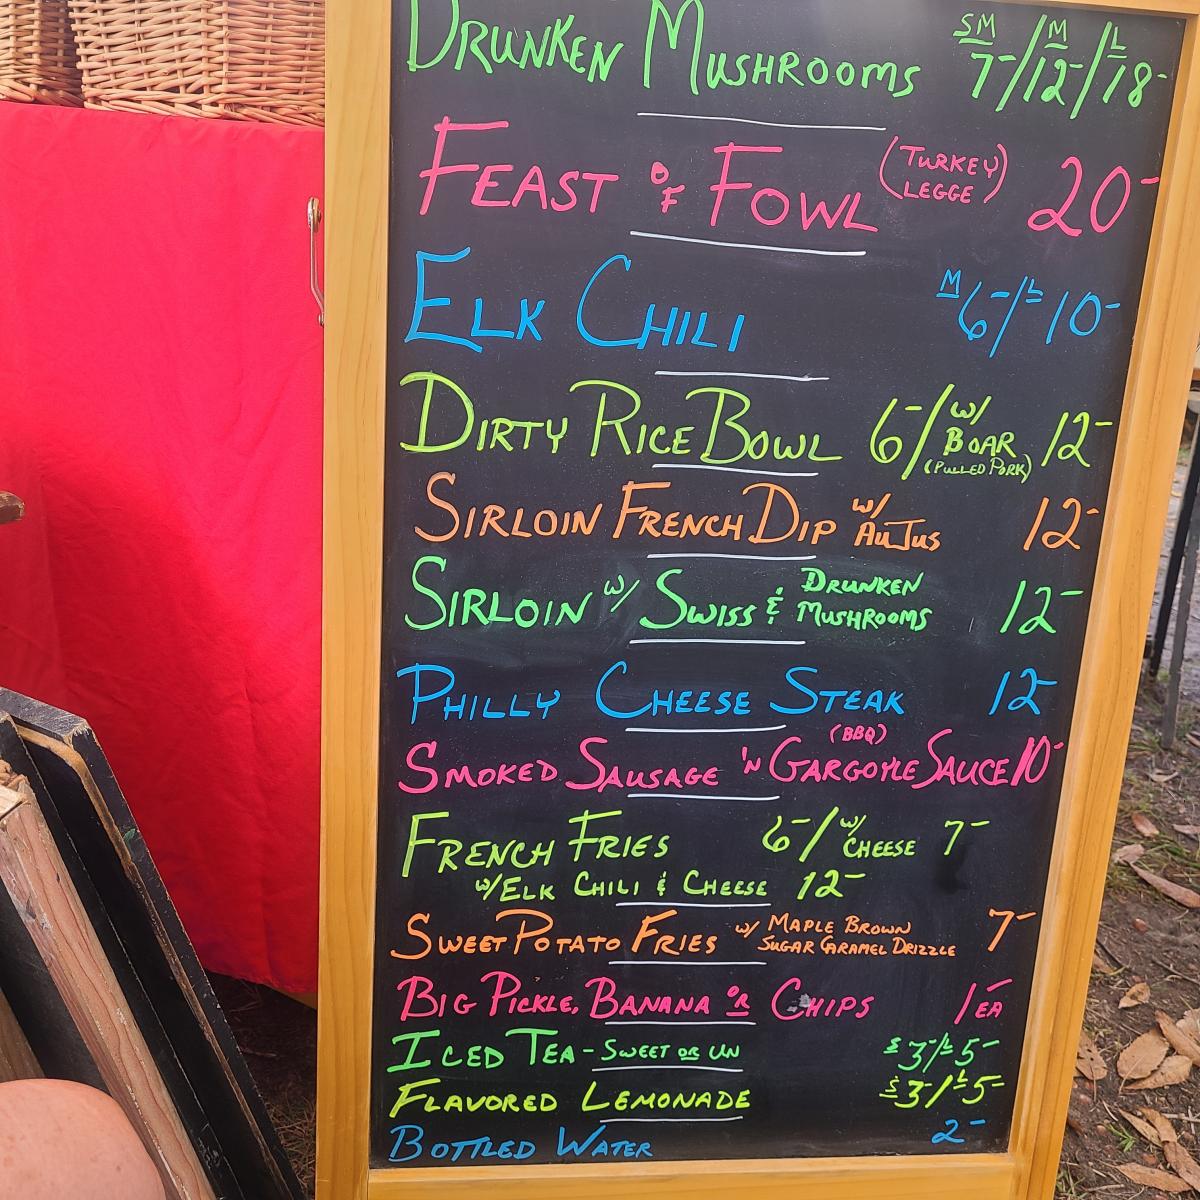 DRUNKEN MUSHROOMS SM 7-/M 12-/L 18-
FEAST OF FOWL (TURKEY LEGGE) 20-
ELK CHILI M 6-/L 10-
DIRTY RICE BOWL 6-/W/ BOAR (PULLED PORK) 12-
SIRLOIN FRENCH DIP W/ AU JUS 12-
SIRLOIN W/ SWISS & DRUNKEN MUSHROOMS 12-
PHILLY CHEESE STEAK 12-
SMOKED SAUSAGE 'N GARGOYLE (BBQ) SAUCE 10-
FRENCH FRIES 6-/W/ CHEESE 7-
W/ELK CHILI & CHEESE 12-
SWEET POTATO FRIES W/ MAPLE BROWN SUGAR CARAMEL DRIZZLE 7-
BIG PICKLE, BANANA OR CHIPS 1- EA
ICED TEA - SWEET OR UN S 3-/L 5-
FLAVORED LEMONADE S 3-/L 5-
BOTTLED WATER 2-